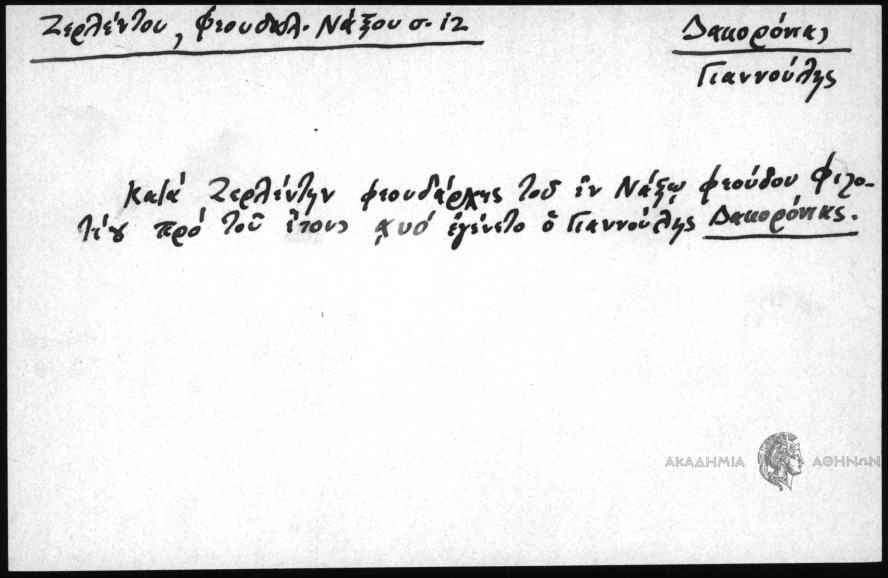 Ζερλέντου, Φεουδαλ. Νάξου σ. 12
Δακορόνιας
Γιαννούλης
Κατά Ζερλέντην φεουδάρχης τοῦ ἐν Νάξῳ φεούδου Φιλο-
τίου πρό τοῦ ἔτους αχυό ἐγένετο ὁ Γιαννούλης Δακορόνιας.
ΑΚΑΔΗΜΙΑ ΑΘΗΝΩΝ